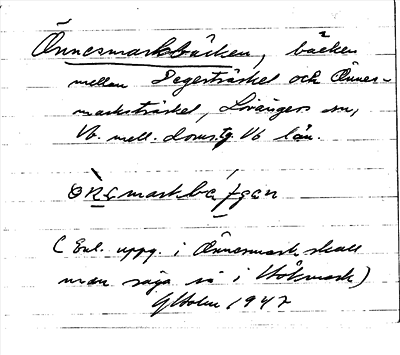 Önnesmarkbäcken, bäcken
mellan Degerträsket och Önnes-
marksträsket, Lövångers sn,
Vb. mell. doms.tg. Vb län.
(Enl. uppg. i Önnesmark skall
man säga så i Hökmark)
1947